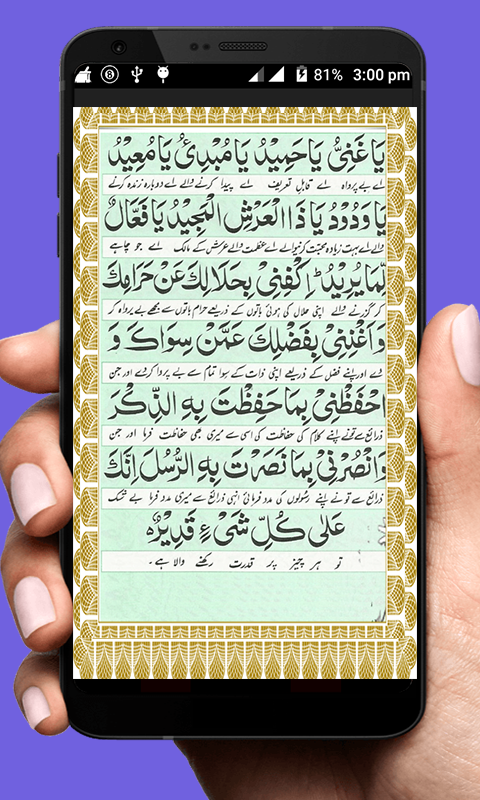 81% 3:00 pm
يَا غَنِيُّ يَا حَمِيْدُ يَا مُبْدِئُ يَا مُعِيْدُ
اے بے پرواہ اے قابل تعریف اے پیدا کرنے والے اے دوبارہ زندہ کرنے
يَا وَدُوْدُ يَا ذَا الْعَرْشِ الْمَجِيْدُ يَا فَعَّالٌ
والے اے بہت زیادہ محبت کرنیوالے اے عظمت والے عرش کے مالک اے جو چاہے
لِّمَا يُرِيْدُ ؕ اِكْفِنِيْ بِحَلَالِكَ عَنْ حَرَامِكَ
کر گزرنے والے اپنی حلال کی ہوئی باتوں کے ذریعے حرام باتوں سے مجھے بے پرواہ کر
وَاَغْنِنِيْ بِفَضْلِكَ عَمَّنْ سِوَاكَ وَ
دے اور اپنے فضل کے ذریعے اپنی ذات کے سوا تمام سے بے پروا کردے اور جن
احْفَظْنِيْ بِمَا حَفِظْتَ بِهِ الذِّكْرَ
ذرائع سے تونے اپنے کلام کی حفاظت کی اسی سے میری بھی حفاظت فرما اور جن
وَانْصُرْنِيْ بِمَا نَصَرْتَ بِهِ الرُّسُلَ اِنَّكَ
ذرائع سے تو نے اپنے رسولوں کی مدد فرمائی انہی ذرائع سے میری مدد فرما بے شک
عَلٰى كُلِّ شَيْءٍ قَدِيْرٌ
تو ہر چیز پر قدرت رکھنے والا ہے۔